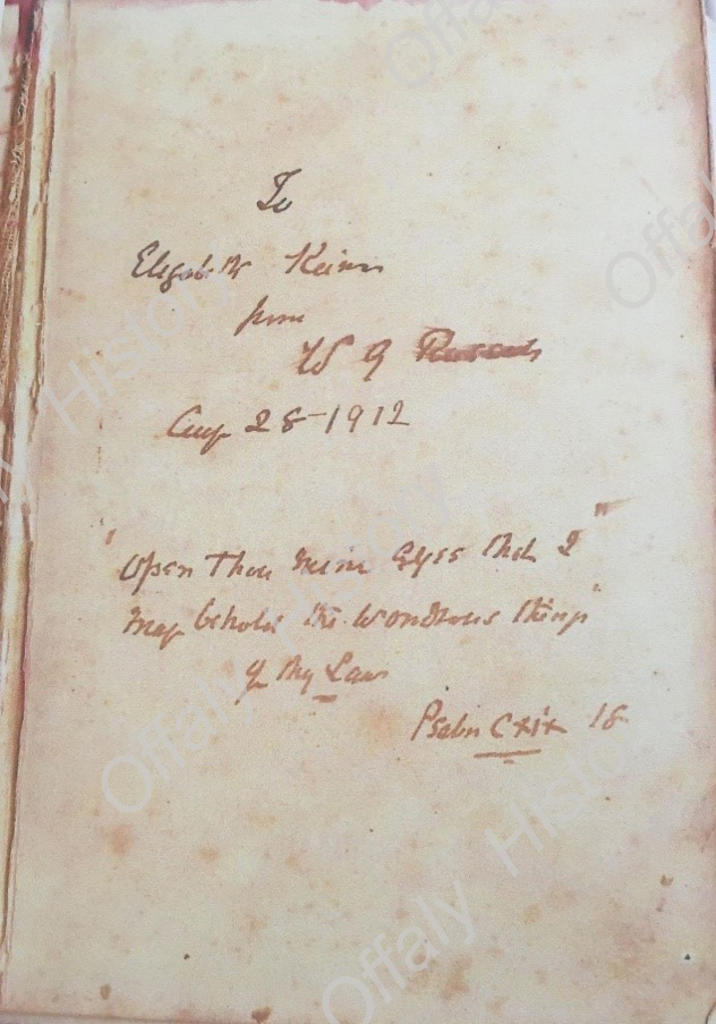 To
Elizabeth
from
W G
Aug 28-1912
"Open Thou mine Eyes that I"
may behold the wondrous things"
of thy Law
Psalm cxix 18
Offaly History
Offaly History
Offaly History
Offaly History